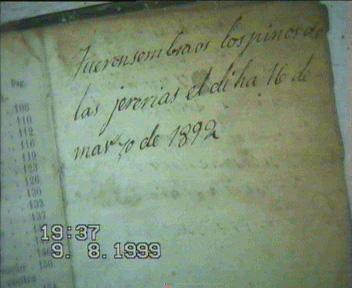 Fueron sembraos los pinos de
las jererias el diha 16 de
marzo de 1892
Pag.
106
110
112
116
119
123
126
130
133
137
150
19:37
9. 8.1999